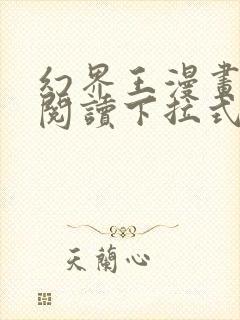 幻界王漫畫
閱讀下拉式
天蘭心